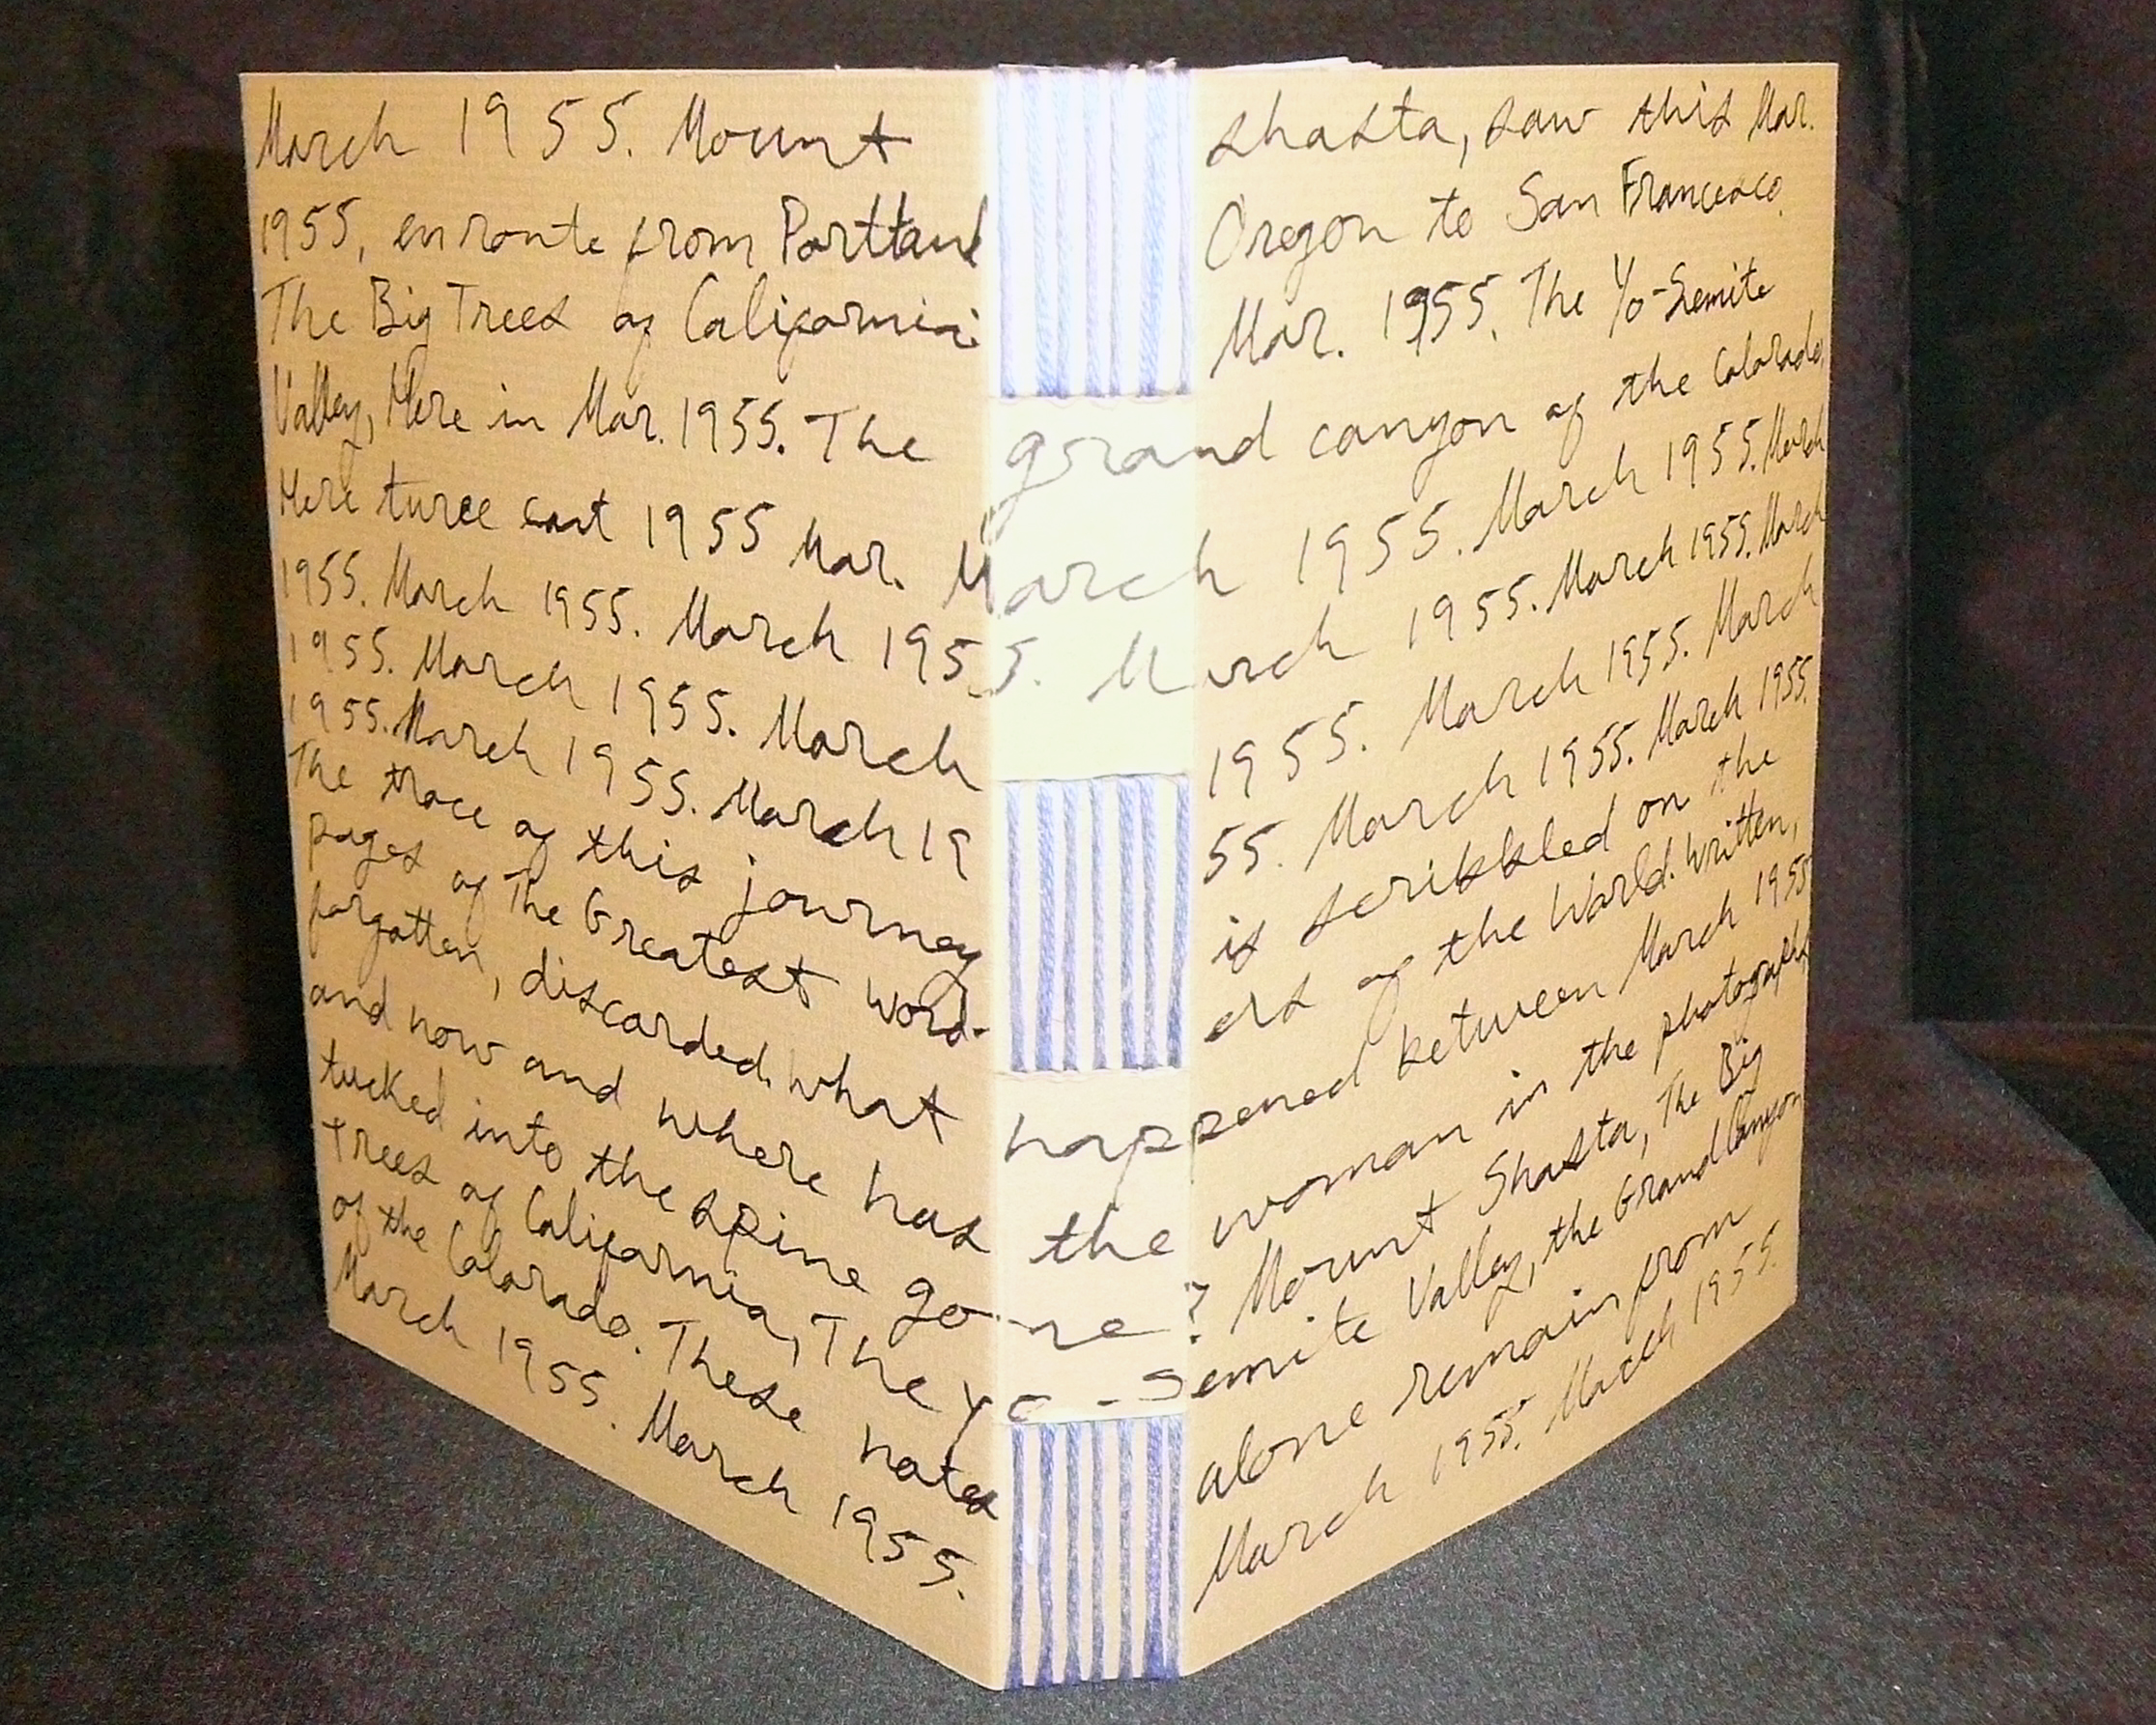 March 1955. Mount shasta, saw this Mar.
1955, en route from Portland Oregon to San Francisco.
The Big Trees of California: Mar. 1955. The Yo-Semite
Valley, Here in Mar. 1955. The grand canyon of the Colorado,
Here 1955 Mar. March 1955. March 1955. March
1955. March 1955. March 1955. March 1955. March 1955. March
1955. March 1955. March 1955. March 1955. March
1955. March 1955. March 19 55. March 1955. March 1955.
The trace of this journey is scribbled on the
pages of The Greatest Word-ers of the World. Written,
forgotten, discarded. What happened between March 1955
and now and where has the woman in the photograph
tucked into the spine gone? Mount Shasta, The Big
Trees of California, The Yo-Semite Valley, the Grand Canyon
of the Colorado. These notes alone remain from
March 1955. March 1955. March 1955. March 1955.